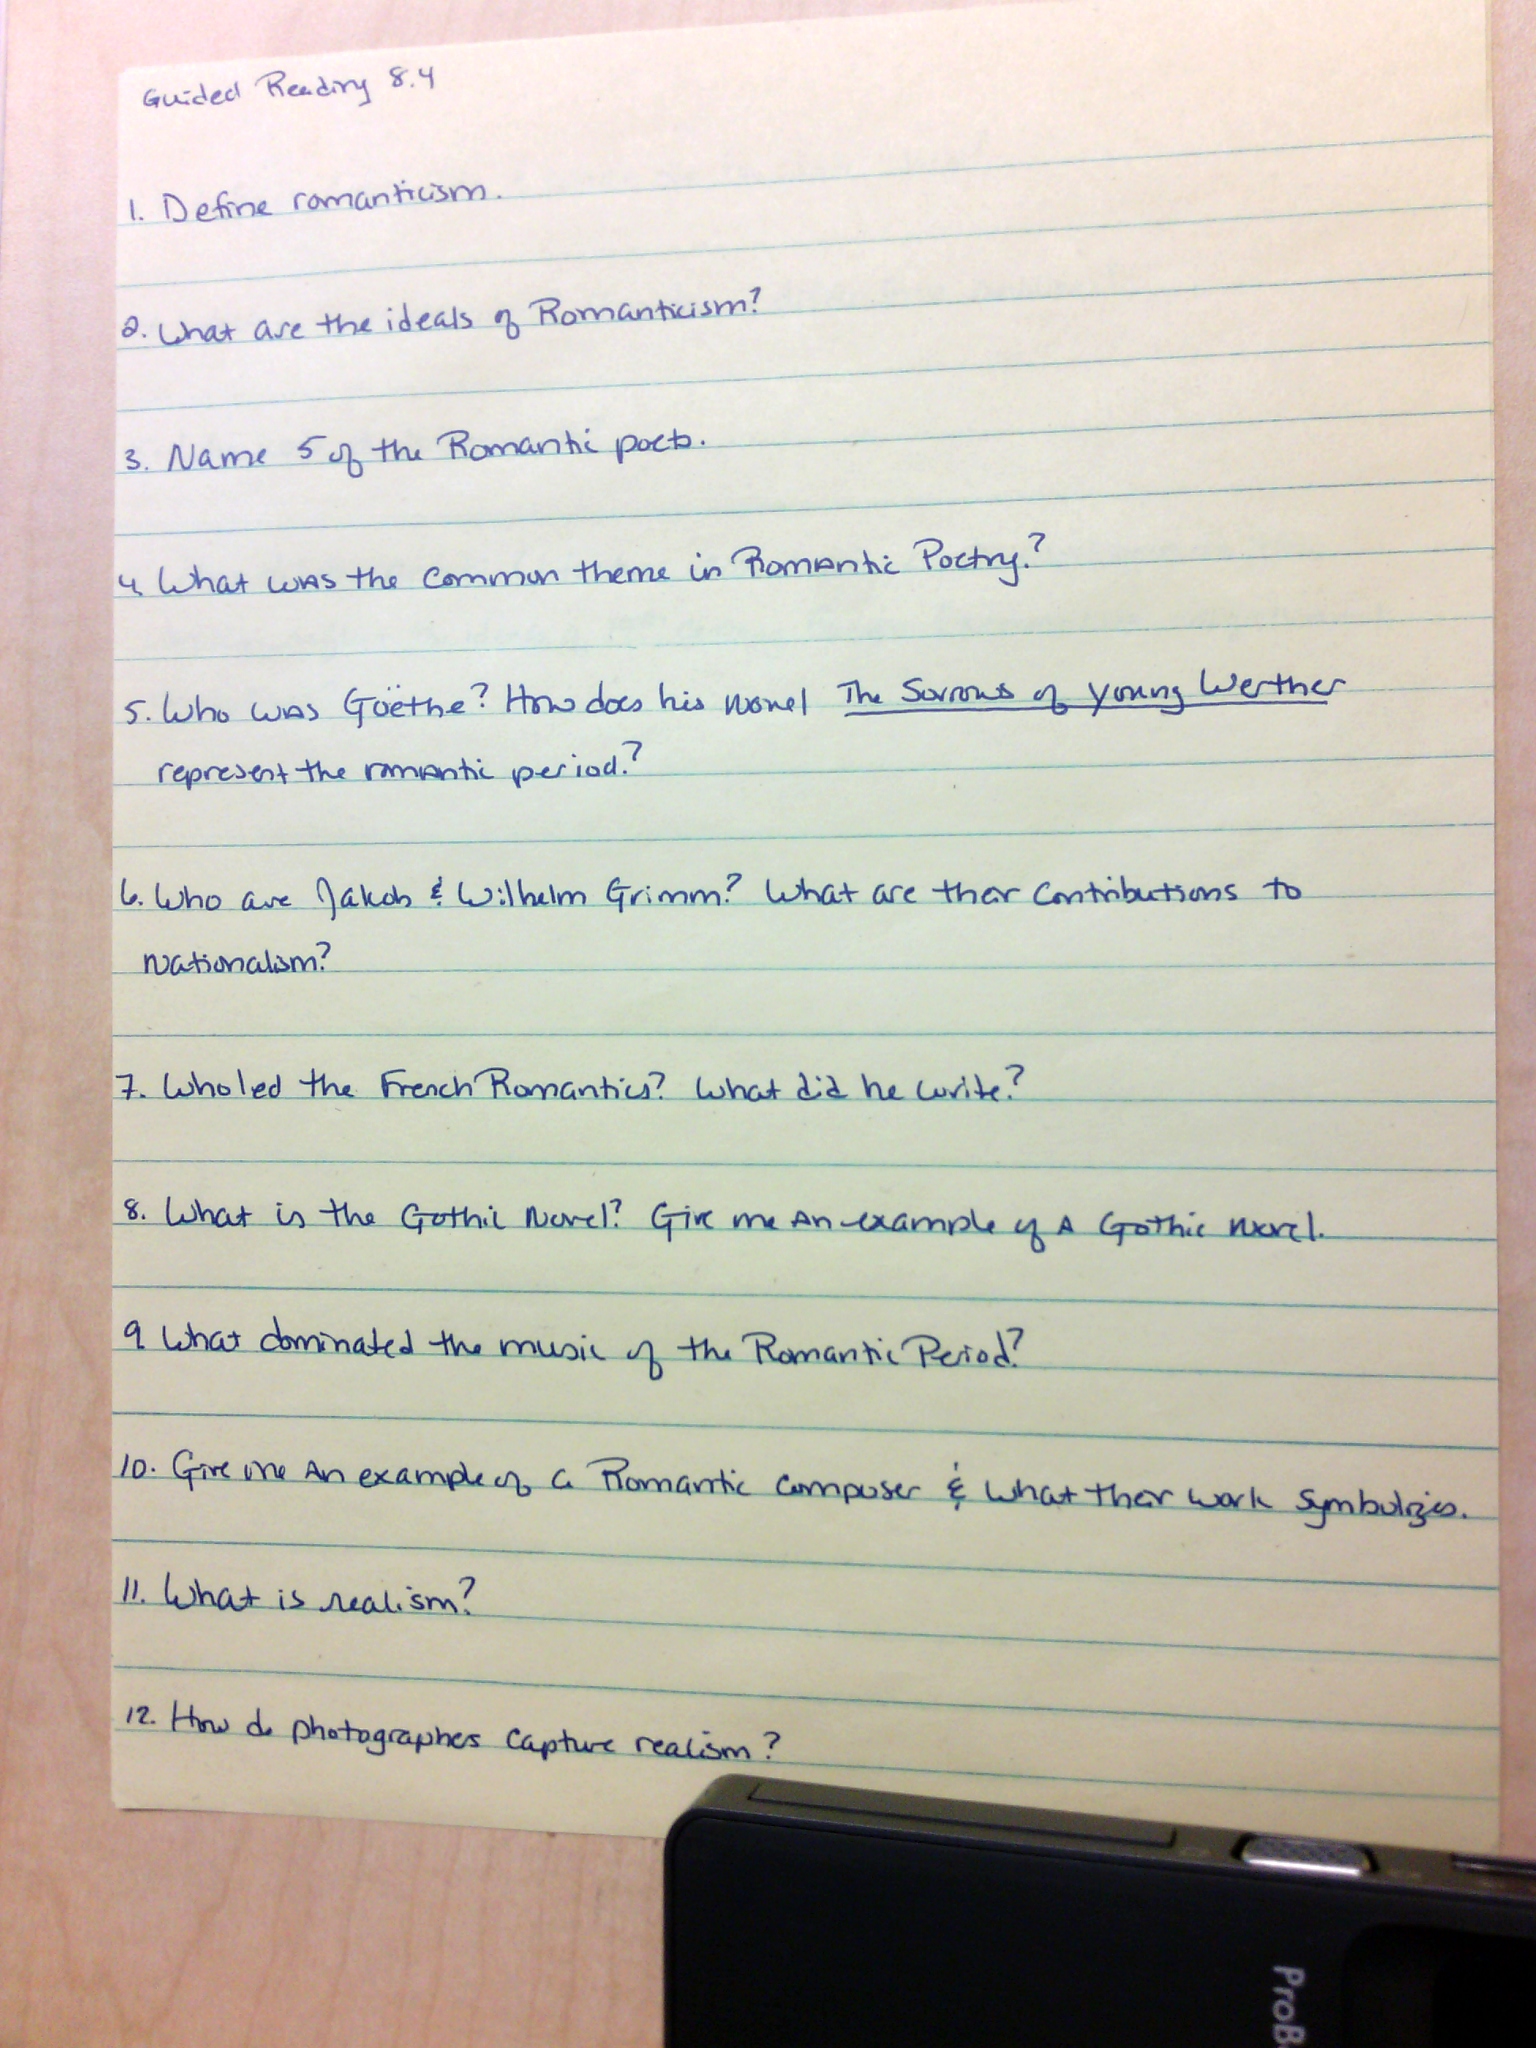 Guided Reading 8.4
1. Define romanticism.
2. What are the ideals of Romanticism?
3. Name 5 of the Romantic poets.
4. What was the common theme in Romantic Poetry?
5. Who was Goëthe? How does his novel The Sorrows of young Werther
represent the romantic period?
6. Who are Jakob & Wilhelm Grimm? What are their contributions to
nationalism?
7. Who led the French Romantics? What did he write?
8. What is the Gothic Novel? Give me An example of A Gothic novel.
9. What dominated the music of the Romantic Period?
10. Give me An example of a Romantic composer & what their work symbolizes.
11. What is realism?
12. How do photographers capture realism?
ProB